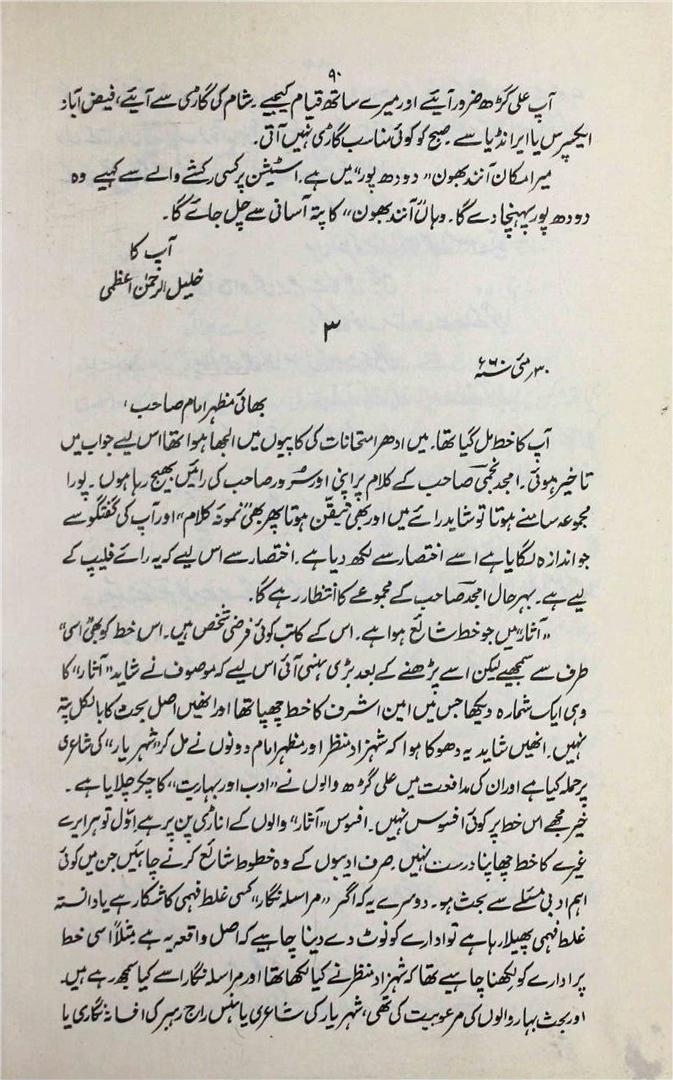 ۹۰
آپ علی گڑھ ضرور آیئے اور میرے ساتھ قیام کیجیے۔ شام کی گاڑی سے آیئے، فیض آباد
ایکسپرس یا ایر انڈیا سے۔ صبح کو کوئی مناسب گاڑی نہیں آتی۔
میرا مکان آنند بھون "دودھ پور" میں ہے۔ اسٹیشن پر کسی رکشے والے سے کہیے وہ
دودھ پور پہنچا دے گا۔ وہاں "آنند بھون" کا پتہ آسانی سے چل جائے گا۔
آپ کا
خلیل الرحمٰن اعظمی
۳
۳۰؍مئی سنہ ۶۶۰
بھائی مظہر امام صاحب،
آپ کا خط مل گیا تھا۔ میں ادھر امتحانات کی کاپیوں میں الجھا ہوا تھا اس لیے جواب میں
تاخیر ہوئی۔ امجد نجمی صاحب کے کلام پر اپنی اور سرور صاحب کی رائیں بھیج رہا ہوں۔ پورا
مجموعہ سامنے ہوتا تو شاید رائے میں اور بھی تیقن ہوتا پھر بھی "نمونۂ کلام" اور آپ کی گفتگو سے
جو اندازہ لگایا ہے اسے اختصار سے لکھ دیا ہے۔ اختصار سے اس لیے کہ یہ رائے فلیپ کے
لیے ہے۔ بہر حال امجد صاحب کے مجموعے کا انتظار رہے گا۔
"آثار" میں جو خط شائع ہوا ہے۔ اس کے کاتب کوئی فرضی شخص ہیں۔ اس خط کو بھی "اسی"
طرف سے سمجھیے لیکن اسے پڑھنے کے بعد بڑی ہنسی آئی اس لیے کہ موصوف نے شاید "آثار" کا
وہی ایک شمارہ دیکھا جس میں امین اشرف کا خط چھپا تھا اور انھیں اصل بحث کا بالکل پتہ
نہیں۔ انھیں شاید یہ دھوکا ہوا کہ شہزاد منظر اور مظہر امام دونوں نے مل کر "شہر یار" کی شاعری
پر حملہ کیا ہے اور ان کی مدافعت میں علی گڑھ والوں نے "ادب اور بہاریت" کا چکر چلایا ہے۔
خیر مجھے اس خط پر کوئی افسوس نہیں۔ افسوس "آثار" والوں کے اناڑی پن پر ہے اوّل تو ہر ایرے
غیرے کا خط چھاپنا درست نہیں۔ صرف ادیبوں کے وہ خطوط شائع کرنے چاہئیں جن میں کوئی
اہم ادبی مسئلے سے بحث ہو۔ دوسرے یہ کہ اگر "مراسلہ نگار" کسی غلط فہمی کا شکار ہے یا دانستہ
غلط فہمی پھیلا رہا ہے تو ادارے کو نوٹ دے دینا چاہیے کہ اصل واقعہ یہ ہے مثلاً اسی خط
پر ادارے کو لکھنا چاہیے تھا کہ شہزاد منظر نے کیا لکھا تھا اور مراسلہ نگار اسے کیا سمجھ رہے ہیں۔
اور بحث بہار والوں کی مرعوبیت کی تھی، شہر یار کی شاعری یا ہنس راج رہبر کی افسانہ نگاری یا